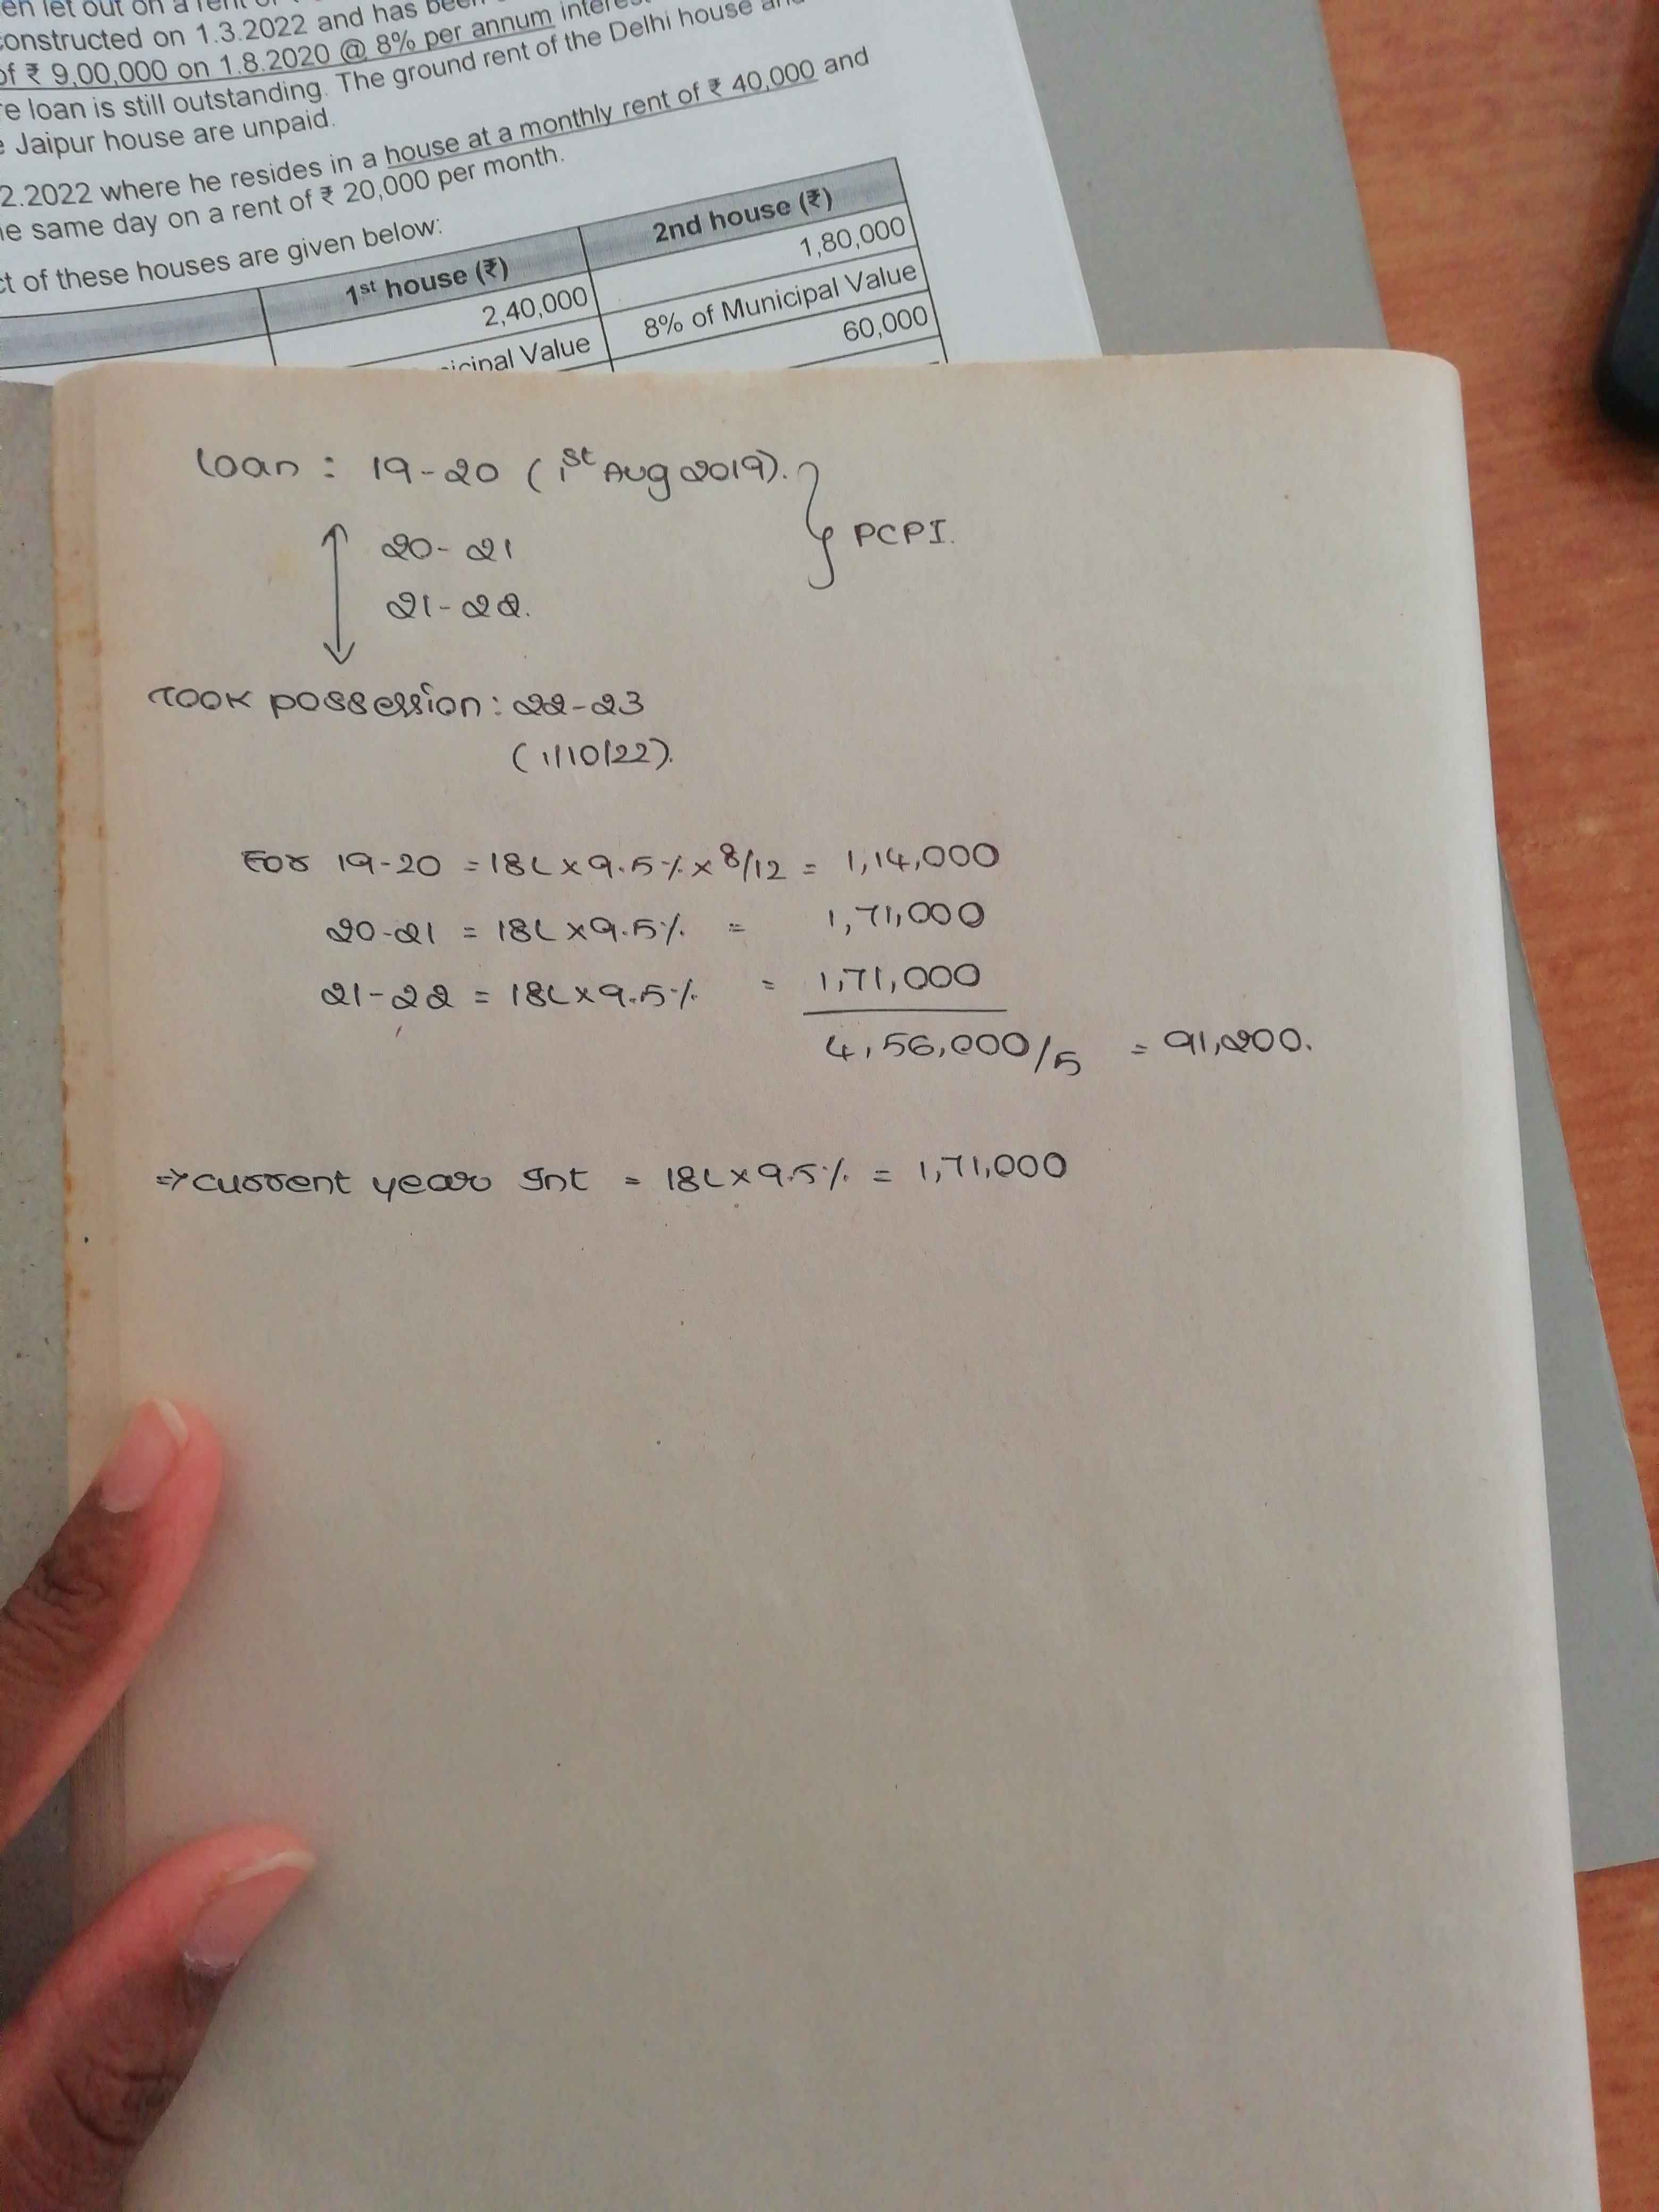 en let out on a rent of
constructed on 1.3.2022 and has been
of ₹ 9,00,000 on 1.8.2020 @ 8% per annum
re loan is still outstanding. The ground rent of the Delhi house
Jaipur house are unpaid.
2.2022 where he resides in a house at a monthly rent of ₹ 40,000 and
same day on a rent of ₹ 20,000 per month.
of these houses are given below:
1st house (₹) 2nd house (₹)
2,40,000 1,80,000
Value 8% of Municipal Value
60,000
Loan : 19-20 (1st Aug 2019).
20-21
21-22.
} PCPI.
Took possession : 22-23
(1/10/22).
For 19-20 = 18L x 9.5% x 8/12 = 1,14,000
20-21 = 18L x 9.5% = 1,71,000
21-22 = 18L x 9.5% = 1,71,000
4,56,000/5 = 91,200.
⇒ current year Int = 18L x 9.5% = 1,71,000